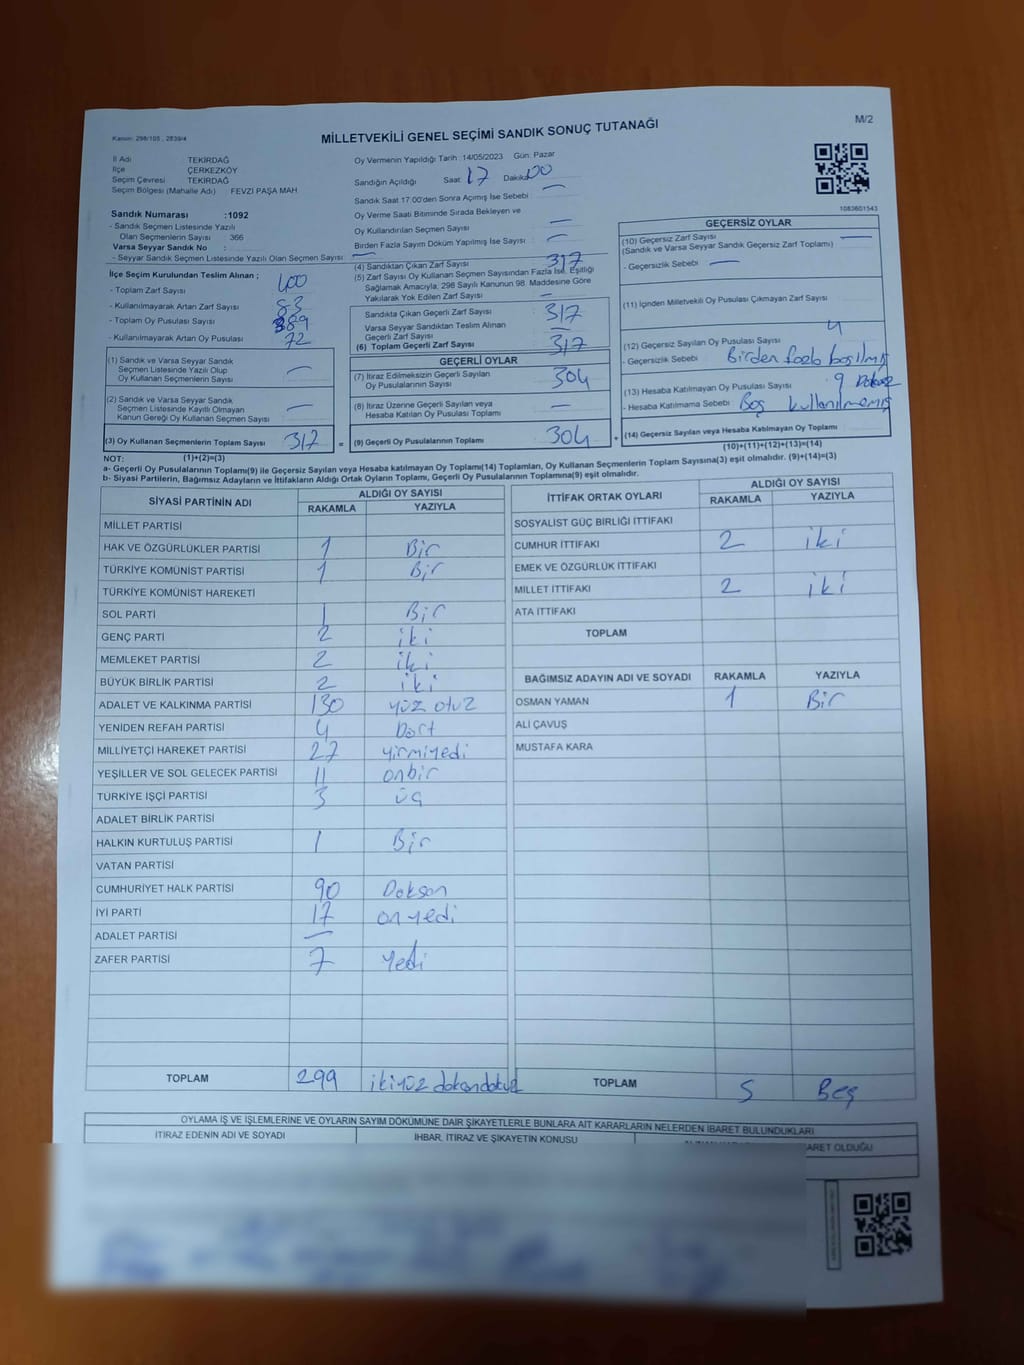 Kanun: 298/105 , 2839/4
MİLLETVEKİLİ GENEL SEÇİMİ SANDIK SONUÇ TUTANAĞI
M/2
İl Adı TEKİRDAĞ
İlçe ÇERKEZKÖY
Seçim Çevresi TEKİRDAĞ
Seçim Bölgesi (Mahalle Adı) : FEVZİ PAŞA MAH
Sandık Numarası :1092
- Sandık Seçmen Listesinde Yazılı
Olan Seçmenlerin Sayısı : 366
Varsa Seyyar Sandık No :
- Seyyar Sandık Seçmen Listesinde Yazılı Olan Seçmen Sayısı: —
İlçe Seçim Kurulundan Teslim Alınan ;
- Toplam Zarf Sayısı 400
- Kullanılmayarak Artan Zarf Sayısı 83
- Toplam Oy Pusulası Sayısı 389
- Kullanılmayarak Artan Oy Pusulası 72
(1) Sandık ve Varsa Seyyar Sandık
Seçmen Listesinde Yazılı Olup
Oy Kullanan Seçmenlerin Sayısı —
(2) Sandık ve Varsa Seyyar Sandık
Seçmen Listesinde Kayıtlı Olmayan
Kanun Gereği Oy Kullanan Seçmen Sayısı —
(3) Oy Kullanan Seçmenlerin Toplam Sayısı 317 =
Oy Vermenin Yapıldığı Tarih : 14/05/2023 Gün: Pazar
Sandığın Açıldığı Saat: 17 Dakika: 00
Sandık Saat 17:00'den Sonra Açımış İse Sebebi : —
Oy Verme Saati Bitiminde Sırada Bekleyen ve
Oy Kullandırılan Seçmen Sayısı —
Birden Fazla Sayım Döküm Yapılmış İse Sayısı : —
(4) Sandıktan Çıkan Zarf Sayısı 317
(5) Zarf Sayısı Oy Kullanan Seçmen Sayısından Fazla İse, Eşitliği
Sağlamak Amacıyla, 298 Sayılı Kanunun 98. Maddesine Göre
Yakılarak Yok Edilen Zarf Sayısı —
Sandıkta Çıkan Geçerli Zarf Sayısı 317
Varsa Seyyar Sandıktan Teslim Alınan
Geçerli Zarf Sayısı —
(6) Toplam Geçerli Zarf Sayısı 317
GEÇERLİ OYLAR
(7) İtiraz Edilmeksizin Geçerli Sayılan
Oy Pusulalarının Sayısı 304
(8) İtiraz Üzerine Geçerli Sayılan veya
Hesaba Katılan Oy Pusulası Toplamı —
(9) Geçerli Oy Pusulalarının Toplamı 304 +
1083601543
GEÇERSİZ OYLAR
(10) Geçersiz Zarf Sayısı —
(Sandık ve Varsa Seyyar Sandık Geçersiz Zarf Toplamı)
- Geçersizlik Sebebi : —
(11) İçinden Milletvekili Oy Pusulası Çıkmayan Zarf Sayısı
(12) Geçersiz Sayılan Oy Pusulası Sayısı 4
- Geçersizlik Sebebi : Birden fazla basılmış
(13) Hesaba Katılmayan Oy Pusulası Sayısı 9 Dokuz
- Hesaba Katılmama Sebebi : Boş kullanılmamış
(14) Geçersiz Sayılan veya Hesaba Katılmayan Oy Toplamı
NOT: (1)+(2)=(3)
(10)+(11)+(12)+(13)=(14)
a- Geçerli Oy Pusulalarının Toplamı(9) ile Geçersiz Sayılan veya Hesaba katılmayan Oy Toplamı(14) Toplamları, Oy Kullanan Seçmenlerin Toplam Sayısına(3) eşit olmalıdır. (9)+(14)=(3)
b- Siyasi Partilerin, Bağımsız Adayların ve İttifakların Aldığı Ortak Oyların Toplamı, Geçerli Oy Pusulalarının Toplamına(9) eşit olmalıdır.
SİYASİ PARTİNİN ADI ALDIĞI OY SAYISI
RAKAMLA YAZIYLA
MİLLET PARTİSİ
HAK VE ÖZGÜRLÜKLER PARTİSİ 1 Bir
TÜRKİYE KOMÜNİST PARTİSİ 1 Bir
TÜRKİYE KOMÜNİST HAREKETİ
SOL PARTİ 1 Bir
GENÇ PARTİ 2 iki
MEMLEKET PARTİSİ 2 iki
BÜYÜK BİRLİK PARTİSİ 2 iki
ADALET VE KALKINMA PARTİSİ 130 yüz otuz
YENİDEN REFAH PARTİSİ 4 Dört
MİLLİYETÇİ HAREKET PARTİSİ 27 yirmiyedi
YEŞİLLER VE SOL GELECEK PARTİSİ 11 onbir
TÜRKİYE İŞÇİ PARTİSİ 3 üç
ADALET BİRLİK PARTİSİ
HALKIN KURTULUŞ PARTİSİ 1 Bir
VATAN PARTİSİ
CUMHURİYET HALK PARTİSİ 90 Doksan
İYİ PARTİ 17 onyedi
ADALET PARTİSİ —
ZAFER PARTİSİ 7 Yedi
TOPLAM 299 ikiyüz doksandokuz
İTTİFAK ORTAK OYLARI ALDIĞI OY SAYISI
RAKAMLA YAZIYLA
SOSYALİST GÜÇ BİRLİĞİ İTTİFAKI
CUMHUR İTTİFAKI 2 iki
EMEK VE ÖZGÜRLÜK İTTİFAKI
MİLLET İTTİFAKI 2 iki
ATA İTTİFAKI
TOPLAM
BAĞIMSIZ ADAYIN ADI VE SOYADI RAKAMLA YAZIYLA
OSMAN YAMAN 1 Bir
ALİ ÇAVUŞ
MUSTAFA KARA
TOPLAM 5 Beş
OYLAMA İŞ VE İŞLEMLERİNE VE OYLARIN SAYIM DÖKÜMÜNE DAİR ŞİKAYETLERLE BUNLARA AİT KARARLARIN NELERDEN İBARET BULUNDUKLARI
İTİRAZ EDENİN ADI VE SOYADI İHBAR, İTİRAZ VE ŞİKAYETİN KONUSU OLDUĞU